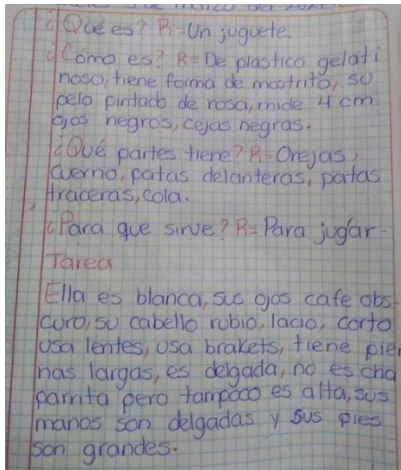 ¿Qué es? R=Un juguete.
¿Cómo es? R=De plastico gelati
noso, tiene forma de mostrito, su
pelo pintado de rosa, mide 4 cm
ojos negros, cejas negras.
¿Qué partes tiene? R=Orejas,
cuerno, patas delanteras, patas
traceras, cola.
¿Para que sirve? R= Para jugar.
Tarea
Ella es blanca, sus ojos cafe obs
curo, su cabello rubio, lacio, corto
usa lentes, usa brakets, tiene pier
nas largas, es delgada, no es cha
parrita pero tampoco es alta, sus
manos son delgadas y sus pies
son grandes.